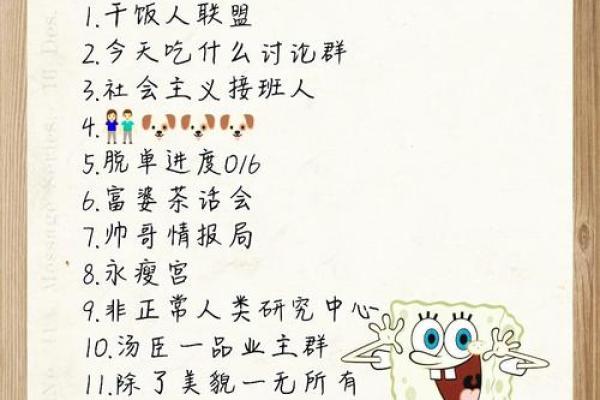 1.干饭人联盟
2.今天吃什么讨论群
3.社会主义接班人
4.👫🐶🐶🐶
5.脱单进度0/6
6.富婆茶话会
7.帅哥情报局
8.永瘦宫
9.非正常人类研究中心
10.汤臣一品业主群
11.除了美貌一无所有